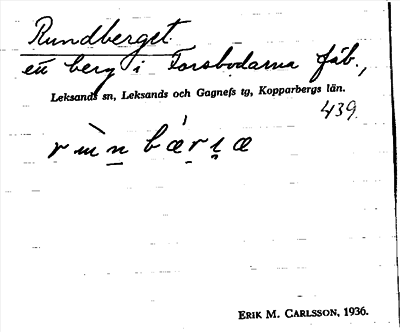 Rundberget
ett berg i Forsbodarna fäb.,
Leksands sn, Leksands och Gagnefs tg, Kopparbergs län.
439.
ERIK M. CARLSSON, 1936.